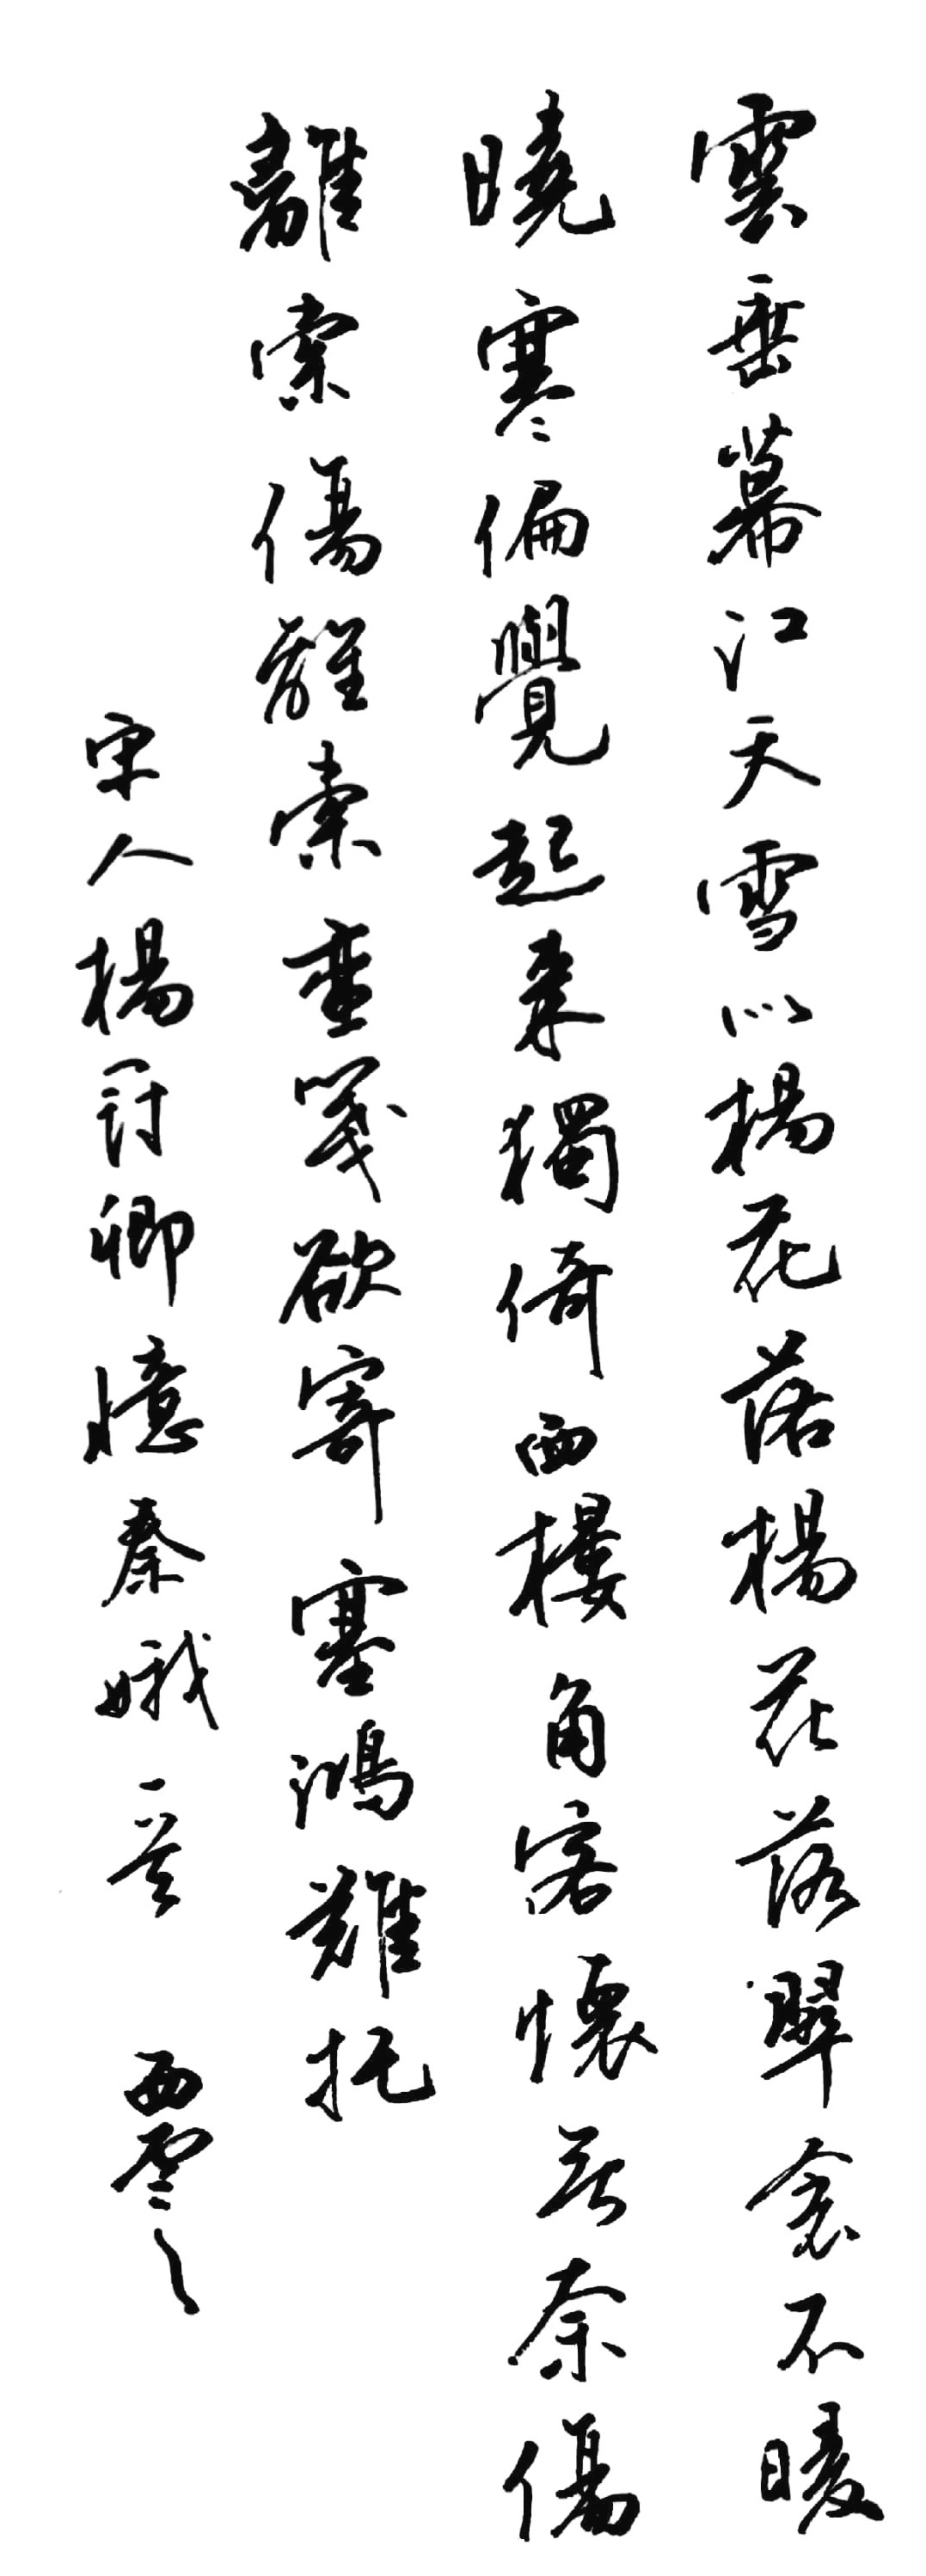 雲垂幕江天雪似楊花落楊花落翠衾不暖
曉寒偏覺起來獨倚西樓角客懷無奈傷
離索傷離索蛮箋欲寄塞鴻難托
宋人楊冠卿憶秦娥一首